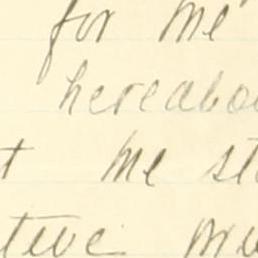 for me
hereabo
t me st
tive m